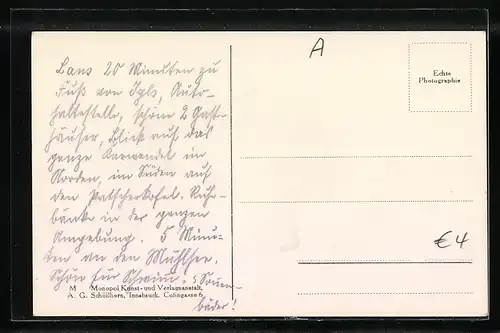 Lans 20 Minuten zu
Fuß von Igls, Auto-
haltestelle, schöne 2 Gast-
häuser, Blick auf das
ganze Karwendel im
Norden, im Süden auf
den Patscherkofel. Ruhe-
bänke in der ganzen
Umgebung. 5 Minu-
ten an den Mühlsee.
Schön für Schwim- & Sonnen-
bäder!
M Monopol Kunst- und Verlagsanstalt,
A. G. Schöllhorn, Innsbruck, Colingasse 6.
A
Echte
Photographie
€4